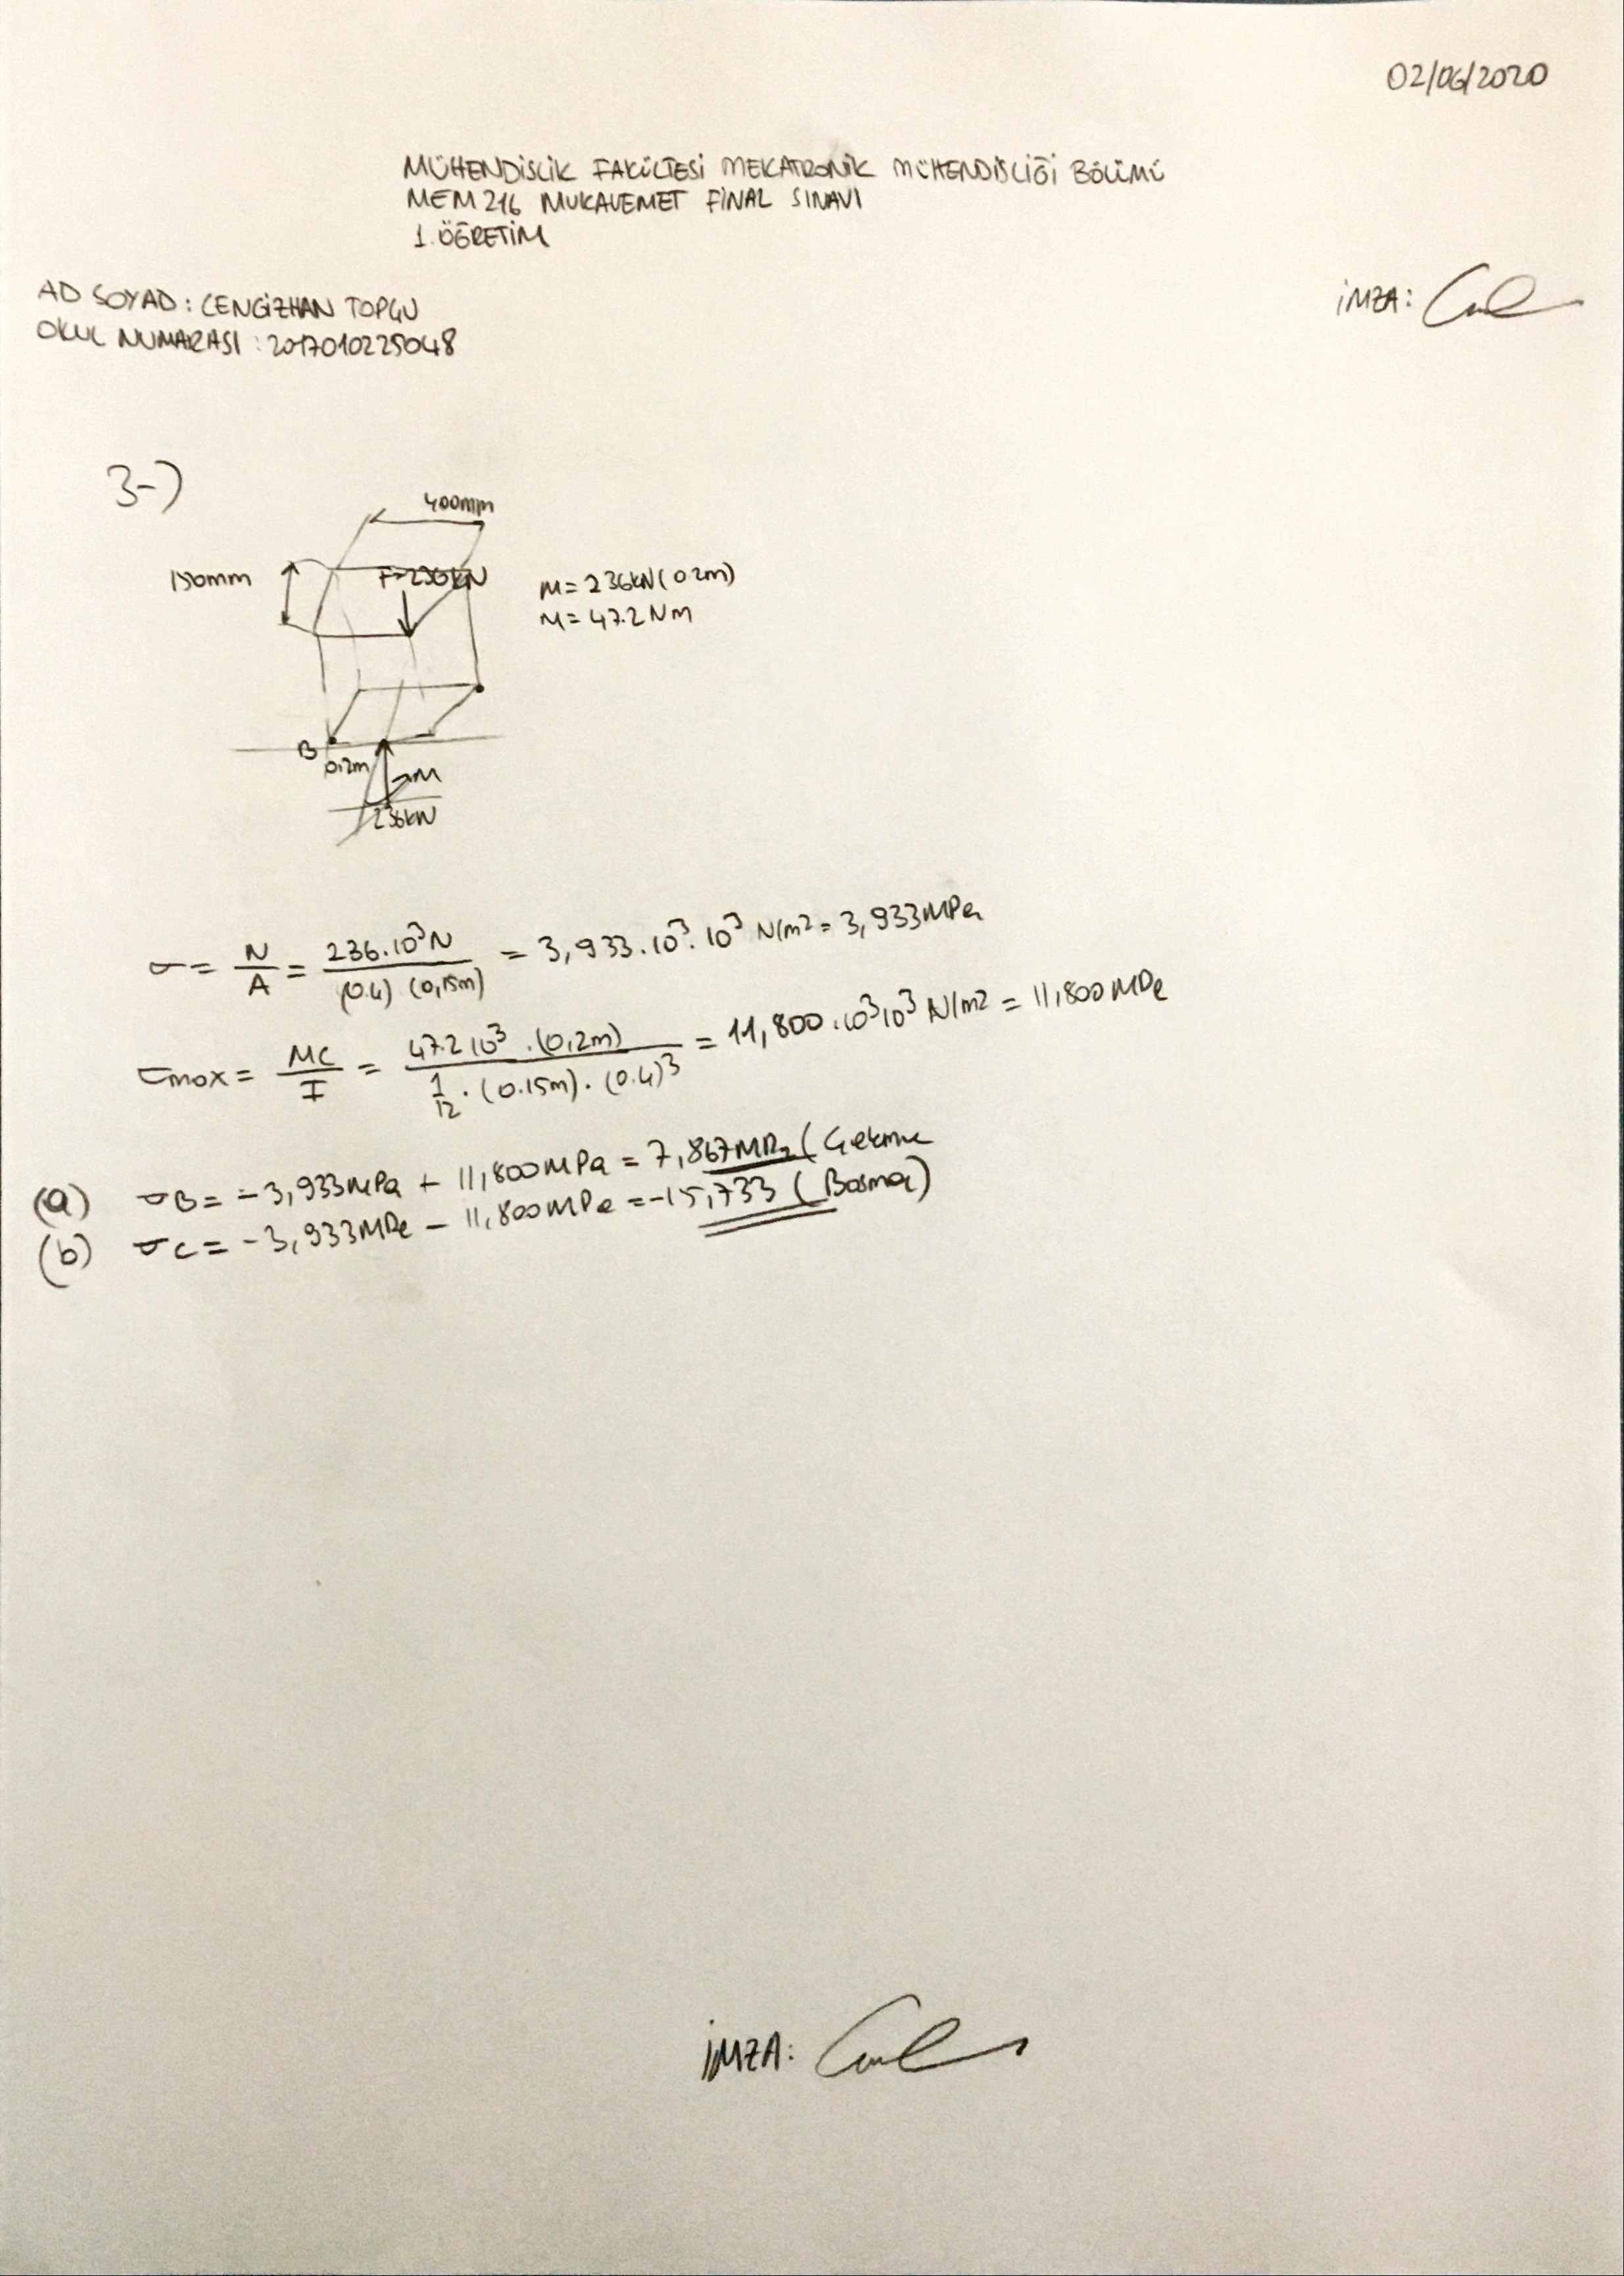 02/06/2020
MÜHENDİSLİK FAKÜLTESİ MEKATRONİK MÜHENDİSLİĞİ BÖLÜMÜ
MEM 216 MUKAVEMET FİNAL SINAVI
1. ÖĞRETİM
İMZA:
AD SOYAD: CENGİZHAN TOPÇU
OKUL NUMARASI: 2017010225048
3-)
400mm
150mm
F=236kN
M = 236kN(0.2m)
M = 47.2 Nm
B
0,2m
M
236kN
σ = N/A = 236.10³N / (0.4) (0,15m) = 3,933.10³.10³ N/m² = 3,933MPa
σmax = MC/I = 47.2 10³ .(0,2m) / 1/12 . (0.15m). (0.4)³ = 11,800.10³10³ N/m² = 11,800MPa
(a) σB = -3,933MPa + 11,800MPa = 7,867MPa (Çekme
(b) σC = -3,933MPa - 11,800MPa = -15,733 (Basma)
İMZA: